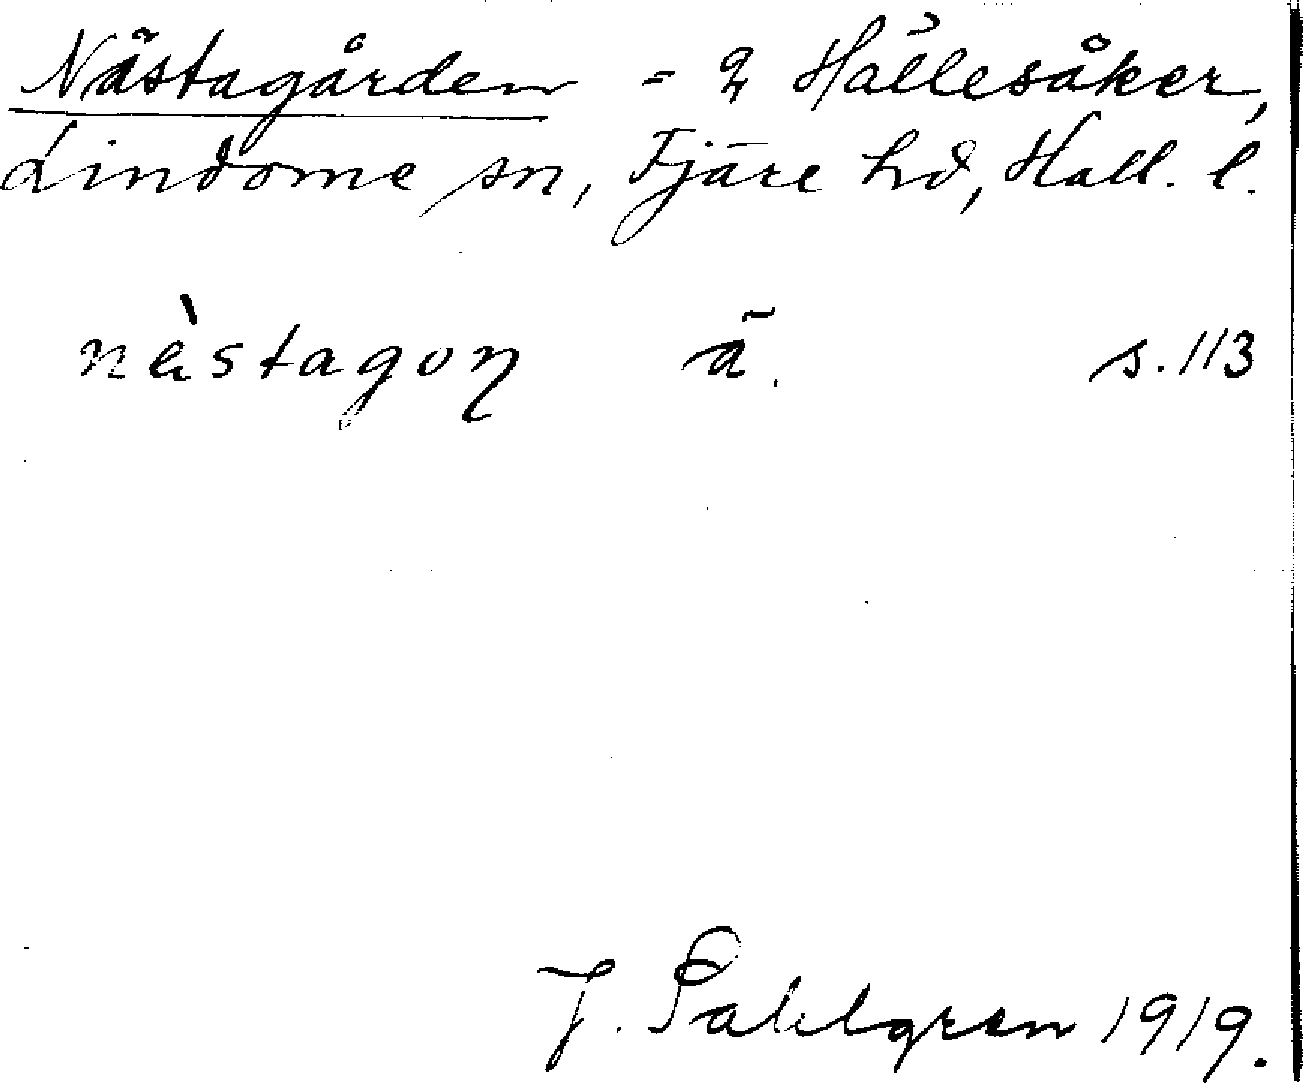 Nästagården = 2 Hällesåker,
Lindome sn, Fjäre hd, Hall. l.
nästagoŋ ä. s. 113
J. Sahlgren 1919.